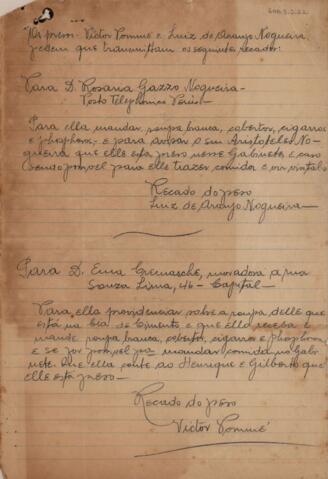 Os presos: Victor Pommé e Luiz de Araujo Nogueira,
pedem que transmittam os seguintes recados:
Para D. Rosaria Gazzo Nogueira -
Posto Telephonico
Para ella mandar, roupa branca, cobertor, cigarros
e phosphoros, e para avisar o snr Aristoteles No-
gueira que elle está preso nesse Gabinete e caso
seja possivel para elle trazer comida e vir visital-o
Recado do preso
Luiz de Araujo Nogueira -
Para D. Ema Cremasche, moradora a rua
Souza Lima, 46 - Capital -
Para ella providenciar sobre a roupa delle que
está na Cia. de Cimento e que ella receba e
mande roupa branca, cobertor, cigarros e phosphoros,
e se for possivel, mandar comida no Gabi-
nete. Que ella conte ao Henrique e Gilberto que
elle está preso -
Recado do preso
Victor Pommé